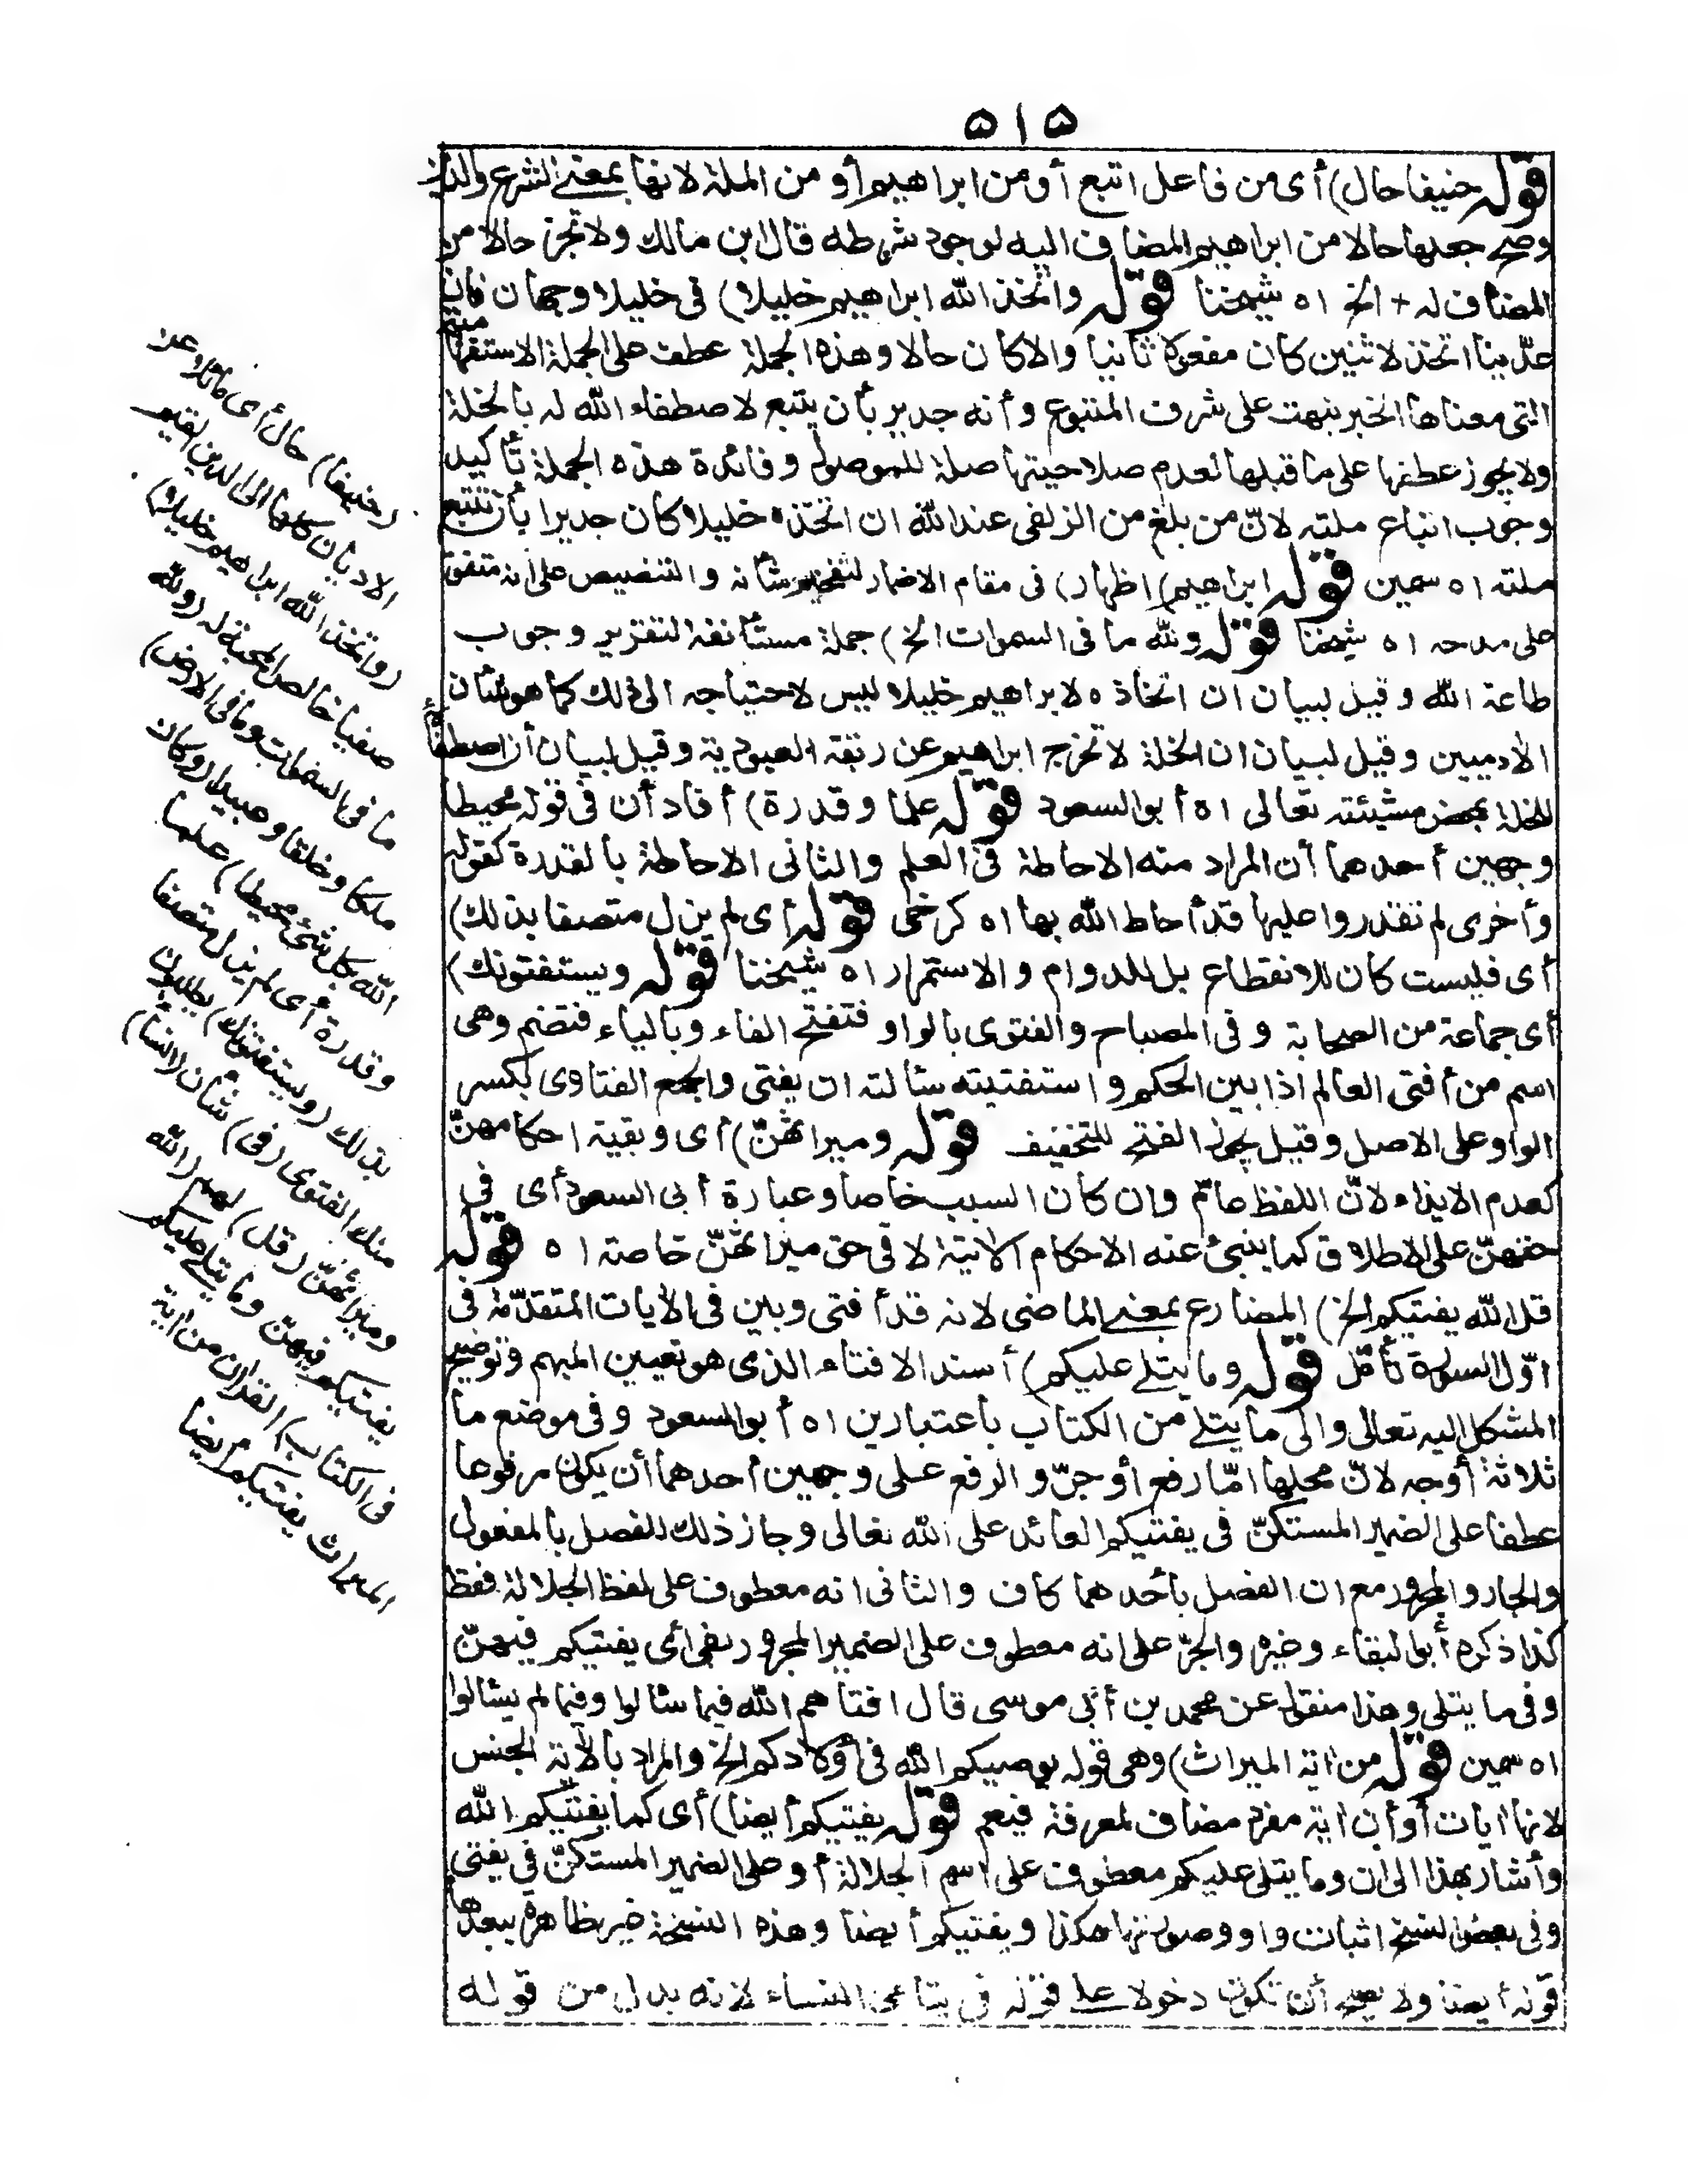 ٥١٥
قوله حنيفا حال) أى من فاعل اتبع أو من ابراهيم أو من الملة لانها بمعنى الشرع والدين
وصح جعلها حالا من ابراهيم المضاف اليه لوجود شرطه قال ابن مالك ولا تجز حالا من
المضاف له + الخ اه شيخنا قوله واتخذ الله ابراهيم خليلا) فى خليلا وجهان فان
عدّينا اتخذ لاثنين كان مفعولا ثانيا والا كان حالا وهذه الجملة عطف على الجملة الاستفهامية
التى معناها الخبر نبهت على شرف المتبوع وأنه جدير بأن يتبع لاصطفاء الله له بالخلة
ولا يجوز عطفها على ما قبلها لعدم صلاحيتها صلة للموصول وفائدة هذه الجملة تأكيد
وجوب اتباع ملته لانّ من بلغ من الزلفى عند الله ان اتخذه خليلا كان جديرا بأن تتبع
ملته اه سمين قوله ابراهيم) اظهار) فى مقام الاضمار لتفخيم شأنه والتنصيص على أنه متفق
على مدحه اه شيخنا قوله ولله ما فى السموات الخ) جملة مستأنفة لتقرير وجوب
طاعة الله وقيل لبيان ان اتخاذه لابراهيم خليلا ليس لاحتياجه الى ذلك كما هو شأن
الآدميين وقيل لبيان ان الخلة لا تخرج ابراهيم عن ربقة العبودية وقيل لبيان أن اصطفاءه
للخلة بمحض مشيئته تعالى اه أبو السعود قوله علما وقدرة) أفاد أن فى قوله محيطا
وجهين أحدهما أن المراد منه الاحاطة فى العلم والثانى الاحاطة بالقدرة كقوله
وأخرى لم تقدروا عليها قد أحاط الله بها اه كرخى قوله أى لم يزل متصفا بذلك)
أى فليست كان للانقطاع بل للدوام والاستمرار اه شيخنا قوله ويستفتونك)
أى جماعة من الصحابة وفى المصباح والفتوى بالواو فتفتح الفاء وبالياء فتضم وهى
اسم من أفتى العالم اذا بين الحكم واستفتيته سألته ان يفتى والجمع الفتاوى بكسر
الواو على الاصل وقيل يجوز الفتح للتخفيف قوله وميراثهنّ) أى وبقية احكامهنّ
كعدم الايذاء لانّ اللفظ عامّ وان كان السبب خاصا وعبارة أبى السعود أى فى
حقهنّ على الاطلاق كما ينبئ عنه الاحكام الآتية لا فى حق ميراثهنّ خاصة اه قوله
قل الله يفتيكم الخ) المضارع بمعنى الماضى لانه قد أفتى وبين فى الآيات المتقدّمة فى
اوّل السورة تأمّل قوله وما يتلى عليكم) أسند الافتاء الذى هو تعيين المبهم وتوضيح
المشكل اليه تعالى والى ما يتلى من الكتاب باعتبارين اه أبو السعود وفى موضع ما
ثلاثة أوجه لانّ محلها امّا رفع أو جرّ والرفع على وجهين أحدهما أن يكون مرفوعا
عطفا على الضمير المستكنّ فى يفتيكم العائد على الله تعالى وجاز ذلك للفصل بالمفعول
والجار والمجرور مع ان الفصل بأحدهما كاف والثانى انه معطوف على لفظ الجلالة فقط
كذا ذكره أبو البقاء وغيره والجرّ على انه معطوف على الضمير المجرور بفى أى يفتيكم فيهنّ
وفى ما يتلى وهذا منقول عن محمد بن أبى موسى قال افتاهم الله فيما سألوا وفيما لم يسألوا
اه سمين قوله من اية الميراث) وهى قوله يوصيكم الله فى أولادكم الخ والمراد بالآية الجنس
لانها ايات أو أن اية مفرد مضاف لمعرفة فيعم قوله يفتيكم أيضا) أى كما يفتيكم الله
وأشار بهذا الى ان وما يتلى عليكم معطوف على اسم الجلالة أو على الضمير المستكنّ فى يفتى
وفى بعض النسخ اثبات واو وصورتها هكذا ويفتيكم أيضا وهذه النسخة غير ظاهرة يبعدها
قوله أيضا ولا يصح أن تكون دخولا على قوله فى يتامى النساء لانه بدل من قوله
(حنيفا) حال أى مائلا عن
الاديان كلها الى الدين القيم
(واتخذ الله ابراهيم خليلا)
صفيا خالص المحبة له (ولله
ما فى السموات وما فى الارض)
ملكا وخلقا وعبيدا (وكان
الله بكل شئ محيطا) علما
وقدرة أى لم يزل متصفا
بذلك (ويستفتونك) يطلبون
منك الفتوى (فى) شأن (النساء)
وميراثهنّ (قل) لهم (الله
يفتيكم فيهنّ وما يتلى عليكم
فى الكتاب) القران من اية
الميراث يفتيكم أيضا